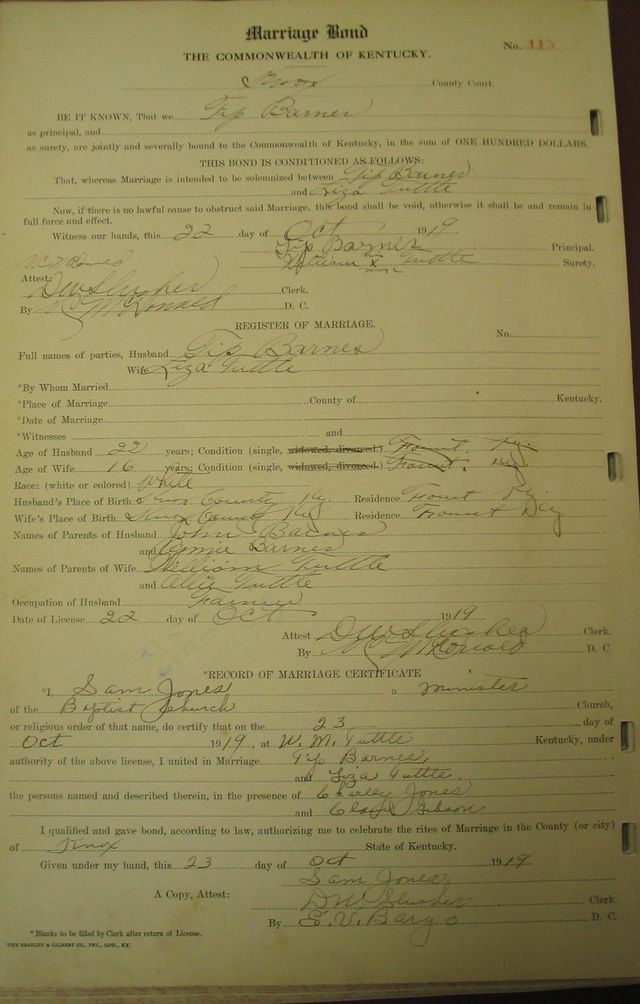 Marriage Bond
THE COMMONWEALTH OF KENTUCKY.
No. 115
Knox County Court.
BE IT KNOWN, That we Tip Barnes
as principal, and
as surety, are jointly and severally bound to the Commonwealth of Kentucky, in the sum of ONE HUNDRED DOLLARS.
THIS BOND IS CONDITIONED AS FOLLOWS:
That, whereas Marriage is intended to be solemnized between Tip Barnes
and Liza Tuttle
Now, if there is no lawful cause to obstruct said Marriage, this bond shall be void, otherwise it shall be and remain in
full force and effect.
Witness our hands, this 22 day of Oct 1919
Tip Barnes Principal.
William x Tuttle Surety.
Attest:
D W Slusher Clerk.
By McDonald D. C.
REGISTER OF MARRIAGE.
No.
Full names of parties, Husband Tip Barnes
Wife Liza Tuttle
*By Whom Married
*Place of Marriage County of Kentucky.
*Date of Marriage
*Witnesses and
Age of Husband 22 years; Condition (single, widowed, divorced.)
Age of Wife 16 years; Condition (single, widowed, divorced.)
Race: (white or colored) White
Husband's Place of Birth Knox County Ky. Residence Ky
Wife's Place of Birth Knox County Ky Residence Ky
Names of Parents of Husband John Barnes
and Barnes
Names of Parents of Wife William Tuttle
and Allie Tuttle
Occupation of Husband Farmer
Date of License 22 day of Oct 1919.
Attest D W Slusher Clerk.
By McDonald D. C
*RECORD OF MARRIAGE CERTIFICATE
*I, Sam Jones a minister
of the Baptist Church Church,
or religious order of that name, do certify that on the 23 day of
Oct 1919, at W. M. Tuttle Kentucky, under
authority of the above license, I united in Marriage Tip Barnes,
and Liza Tuttle,
the persons named and described therein, in the presence of Charley Jones
and Gibson
I qualified and gave bond, according to law, authorizing me to celebrate the rites of Marriage in the County (or city)
of Knox State of Kentucky.
Given under my hand, this 23 day of Oct 1919
Sam Jones
A Copy, Attest: D W Slusher Clerk.
By E. V. Bargo D. C.
*Blanks to be filled by Clerk after return of License.
THE BRADLEY & GILBERT CO., INC., LOU., KY.